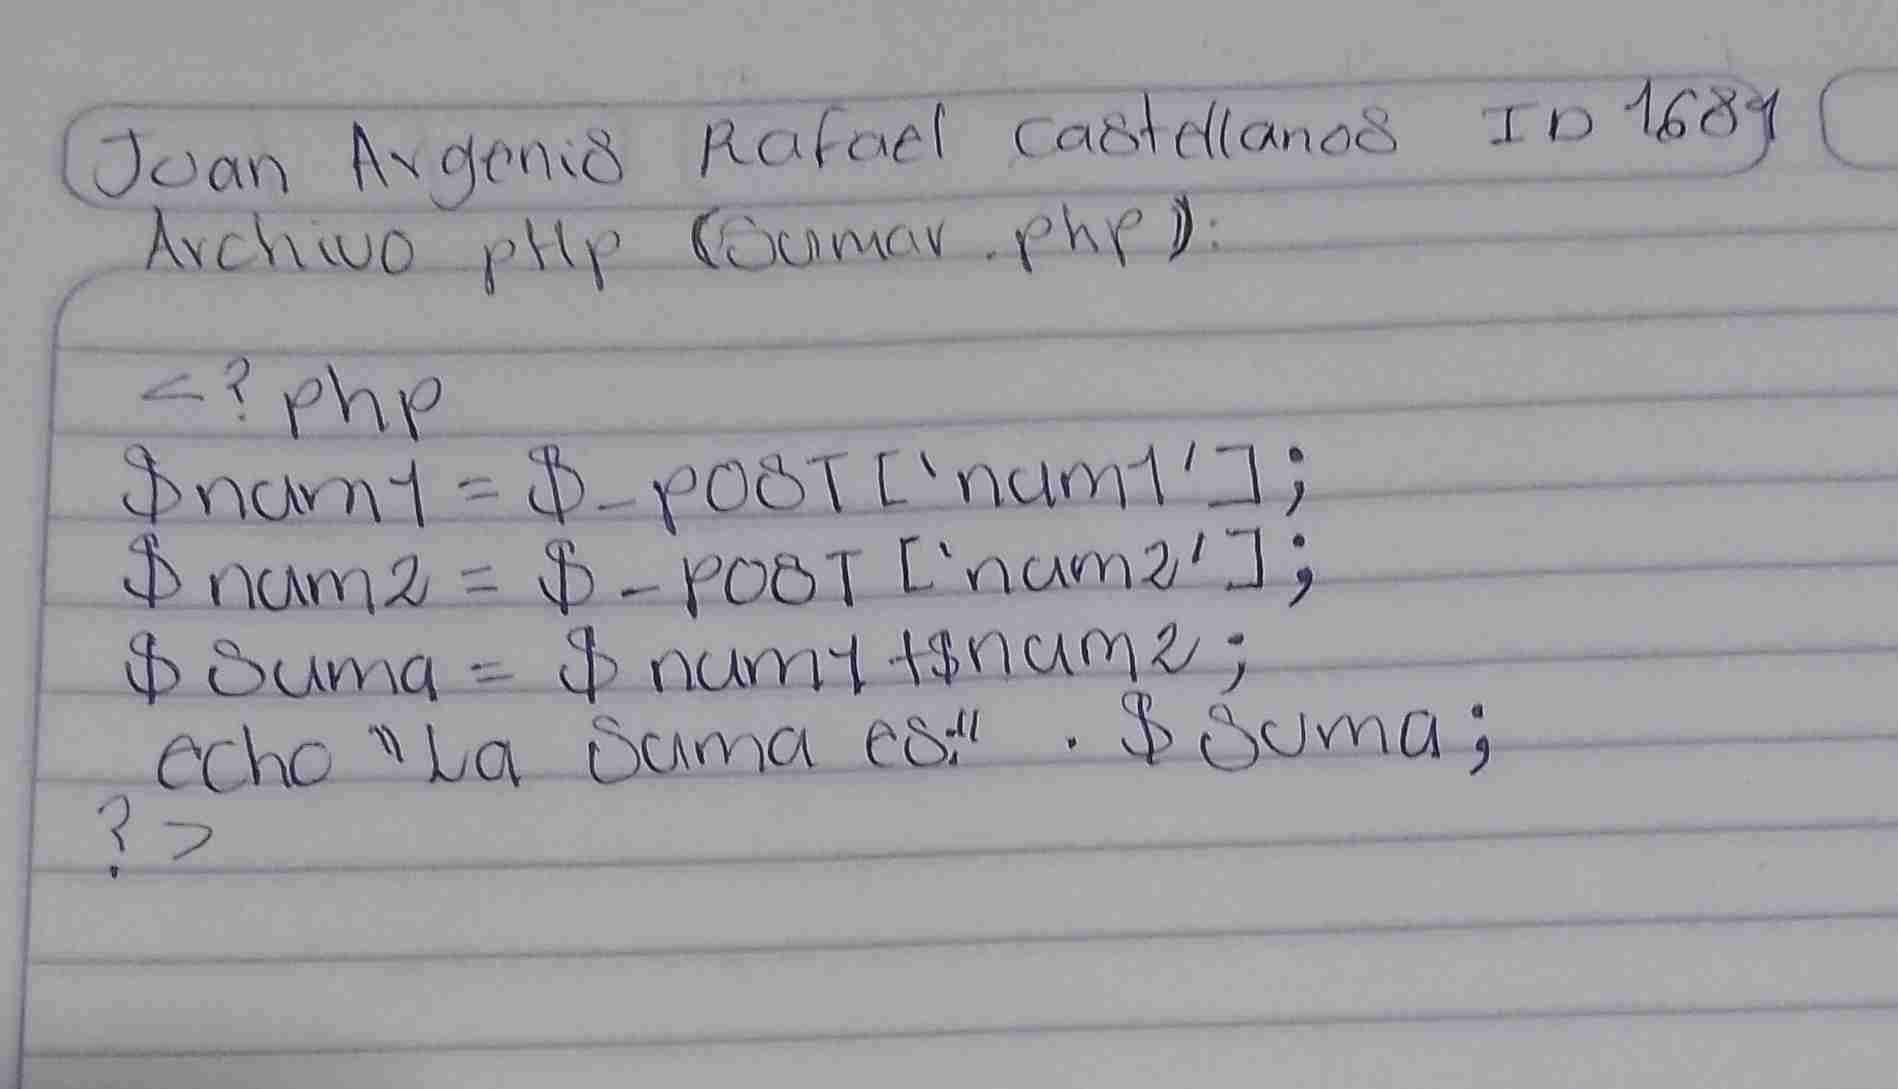 Juan Argenis Rafael Castellanos ID 1689
Archivo pHp (Sumar.php):
<?php
$num1 = $_POST['num1'];
$num2 = $_POST['num2'];
$Suma = $num1 +$num2;
echo "La Suma es:" . $Suma;
?>